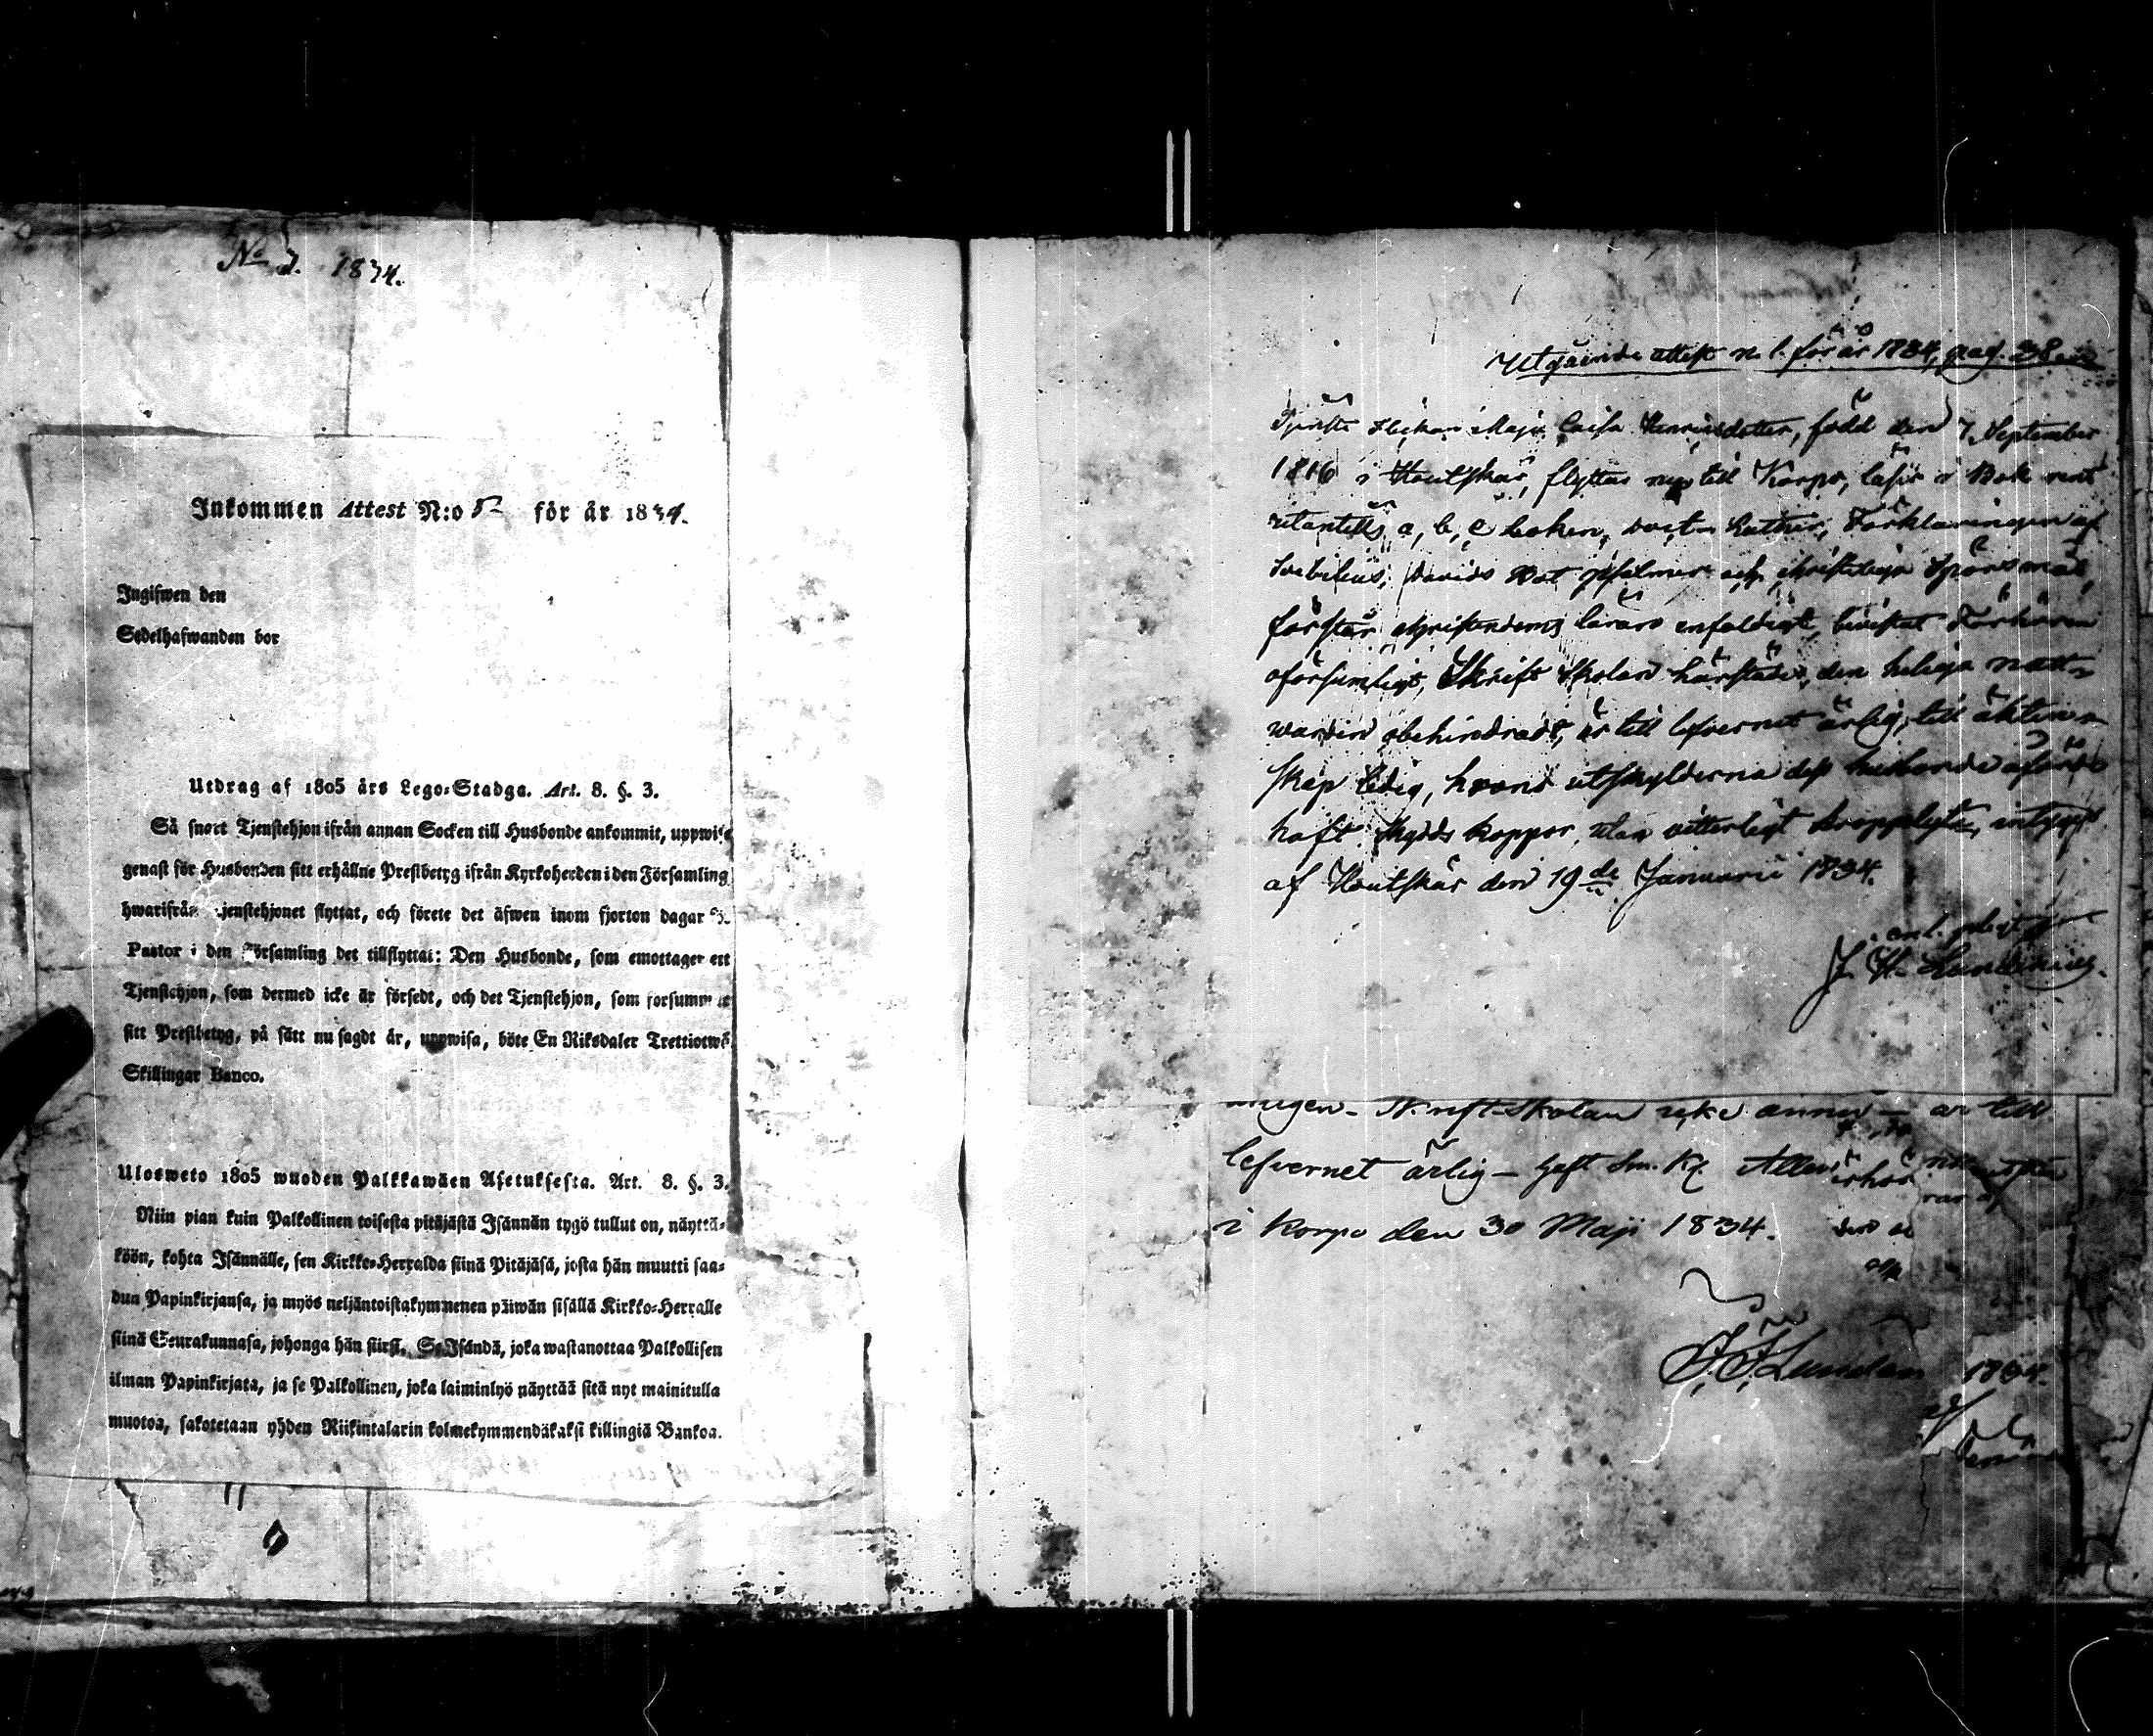 No 7. 1834.
Inkommen Attest N:o 5 för år 1834.
Ingifwen den
Sedelhafwanden bor
Utdrag af 1805 års Lego-Stadga. Art. 8. §. 3.
Så snart Tjenstehjon ifrån annan Socken till Husbonde ankommit, uppwise
genast för Husbonden sitt erhållne Prestbetyg ifrån Kyrkoherden i den Församling
hwarifrån Tjenstehjonet flyttat, och förete det äfwen inom fjorton dagar
Pastor i den Församling det tillflyttat: Den Husbonde, som emottager ett
Tjenstehjon, som dermed icke är försedt, och det Tjenstehjon, som försummar
sitt Prestbetyg, på sätt nu sagdt är, uppwisa, böte En Riksdaler Trettiotwå
Skillingar Banco.
Ulosweto 1805 wuoden Palkkawäen Asetuksesta. Art. 8. §. 3.
Niin pian kuin Palkollinen toisesta pitäjästä Isännän tygö tullut on, näyttä-
köön, kohta Isännälle, sen Kirkko-Herralda siinä Pitäjäsä, josta hän muutti saa-
dun Papinkirjansa, ja myös neljäntoistakymmenen päiwän sisällä Kirkko-Herralle
siinä Seurakunnasa, johonga hän siirsi. Se Isändä, joka wastanottaa Palkollisen
ilman Papinkirjata, ja se Palkollinen, joka laiminlyö näyttää sitä nyt mainitulla
muotoa, sakotetaan yhden Riikintalarin kolmekymmendäkaksi killingiä Bankoa.
Utgående attest n. 1. för år 1834, pag. 38
Flickan Maja Caisa Henricsdotter, född den 7 September
1816 i Houtskär, flyttar nu till Korpo, läser i Bok rent
utantill a, b, c boken, Förklaringen af
Svebilius, Davids Bot psalmer och skriftliga Spörsmål,
förstår christendoms läran enfaldigt, bevistat Förhören
oförsumligt, Skrift Skolan härstädes, den heliga natt-
warden obehindrad, är till lefvernet ärlig, till äkten-
skap ledig, utskylderna dess husbonde
haft skydds koppor, utan vitterligt kroppslyte, intygas
af Houtskär den 19de Januarii 1834.
J. H.
Skrift-Skolan är till
lefvernet ärlig – haft
i Korpo den 30 Maji 1834.
1834.